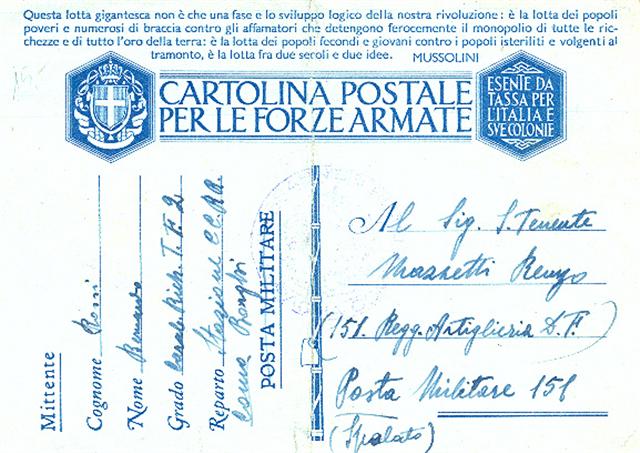 Questa lotta gigantesca non è che una fase e lo sviluppo logico della nostra rivoluzione: è la lotta dei popoli
poveri e numerosi di braccia contro gli affamatori che detengono ferocemente il monopolio di tutte le ric-
chezze e di tutto l'oro della terra: è la lotta dei popoli fecondi e giovani contro i popoli isteriliti e volgenti al
tramonto, è la lotta fra due secoli e due idee. MUSSOLINI
CARTOLINA POSTALE
PER LE FORZE ARMATE
ESENTE DA
TASSA PER
L'ITALIA E
SVE COLONIE
Mittente
Cognome
Nome
Grado
Reparto Stazione CC.RR.
POSTA MILITARE
Al Sig. S. Tenente
Mazzetti Renzo
(151. Regg. Artiglieria D. F.)
Posta Militare 151
(Spalato)